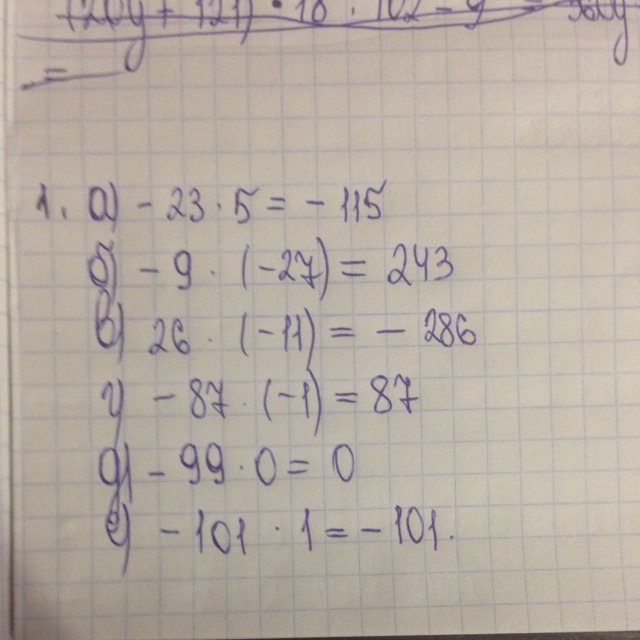 1. а) - 23 · 5 = - 115
б) - 9 · (-27) = 243
в) 26 · (-11) = - 286
г) - 87 · (-1) = 87
д) - 99 · 0 = 0
е) - 101 · 1 = - 101.